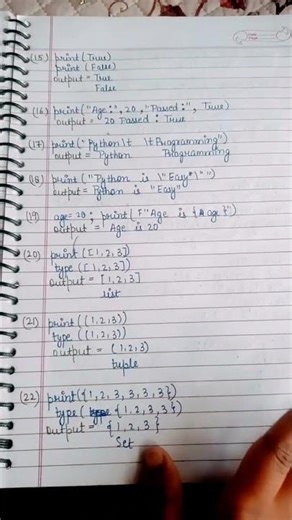 (15) print(True)
print(False)
output = True
False
(16) print("Age:", 20, "Passed:", True)
output = 20 Passed : True
(17) print("Python\t \tProgramming")
output = Python Programming
(18) print("Python is \"Easy"\" ")
output = Python is "Easy"
(19) age=20; print(f"Age is {age}")
output = Age is 20
(20) print([1,2,3])
type([1,2,3])
output = [1,2,3]
list
(21) print((1,2,3))
type((1,2,3))
output = (1,2,3)
tuple
(22) print({1,2,3,3,3,3})
type({1,2,3,3})
output = {1,2,3}
Set